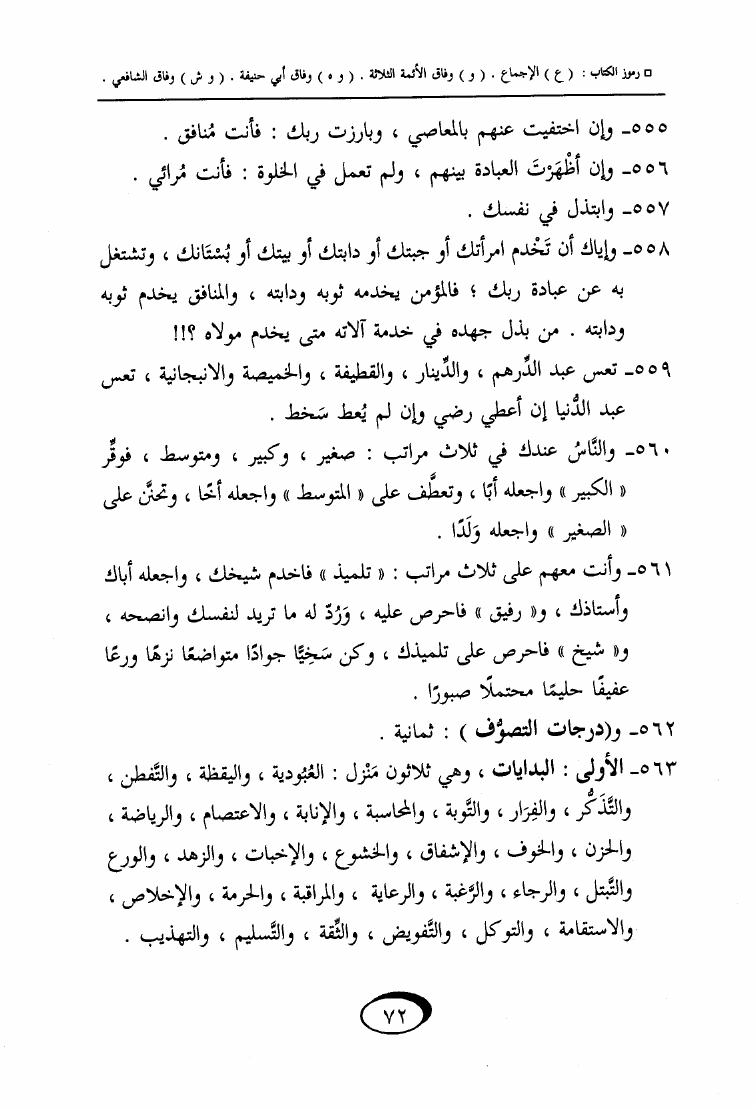 □ رموز الكتاب : ( ع ) الإجماع . ( و ) وفاق الأئمة الثلاثة . ( و ه ) وفاق أبي حنيفة . ( و ش ) وفاق الشافعي .
٥٥٥ـ وإن اختفيت عنهم بالمعاصي ، وبارزت ربك : فأنت مُنافق .
٥٥٦ـ وإن أظْهَرْتَ العبادة بينهم ، ولم تعمل في الخلوة : فأنت مُرائي .
٥٥٧ـ وابتذل في نفسك .
٥٥٨ـ وإياك أن تَخْدم امرأتك أو جبتك أو دابتك أو بيتك أو بُسْتَانك ، وتشتغل
به عن عبادة ربك ؛ فالمؤمن يخدمه ثوبه ودابته ، والمنافق يخدم ثوبه
ودابته . من بذل جهده في خدمة آلاته متى يخدم مولاه ؟!!
٥٥٩ـ تعس عبد الدِّرهم ، والدِّينار ، والقطيفة ، والخميصة والانبجانية ، تعس
عبد الدُّنيا إن أعطي رضي وإن لم يُعط سَخط .
٥٦٠ـ والنَّاسُ عندك في ثلاث مراتب : صغير ، وكبير ، ومتوسط ، فوقِّر
« الكبير » واجعله أبًا ، وتعطَّف على « المتوسط » واجعله أخًا ، وتحنَّن على
« الصغير » واجعله وَلَدًا .
٥٦١ـ وأنت معهم على ثلاث مراتب : « تلميذ » فاخدم شيخك ، واجعله أباك
وأستاذك ، و« رفيق » فاحرص عليه ، وَرُدّ له ما تريد لنفسك وانصحه ،
و« شيخ » فاحرص على تلميذك ، وكن سَخِيًّا جوادًا متواضعًا نزهًا ورعًا
عفيفًا حليمًا محتملًا صبورًا .
٥٦٢ـ و(درجات التصوُّف ) : ثمانية .
٥٦٣ـ الأولى : البدايات ، وهي ثلاثون مَنْزل : العُبُودية ، واليقظة ، والتَّفطن ،
والتَّذَكُّر ، والفِرَار ، والتَّوبة ، والمحاسبة ، والإنابة ، والاعتصام ، والرياضة ،
والحزن ، والخوف ، والإشفاق ، والخشوع ، والإخبات ، والزهد ، والورع
والتَّبتل ، والرجاء ، والرَّغبة ، والرعاية ، والمراقبة ، والحرمة ، والإخلاص ،
والاستقامة ، والتوكل ، والتَّفويض ، والثِّقة ، والتَّسليم ، والتهذيب .
٧٢